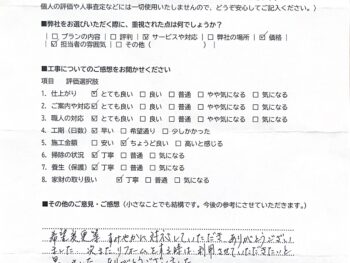 個人の評価や人事査定などには一切使用いたしませんので、どうぞ安心してご記入ください。)
■弊社をお選びいただく際に、重視された点は何でしょうか?
□ プランの内容 □ 評判 ☑ サービスや対応 □ 弊社の場所 ☑ 価格
☑ 担当者の雰囲気 □ その他 ( )
■工事についてのご感想をお聞かせください
項目 評価選択肢
1. 仕上がり ☑ とても良い □ 良い □ 普通 □ やや気になる □ 気になる
2. ご案内や対応 ☑ とても良い □ 良い □ 普通 □ やや気になる □ 気になる
3. 職人の対応 ☑ とても良い □ 良い □ 普通 □ やや気になる □ 気になる
4. 工期(日数) ☑ 早い □ 希望通り □ 少しかかった
5. 施工金額 □ 安い ☑ ちょうど良い □ 高いと感じる
6. 掃除の状況 ☑ 丁寧 □ 普通 □ 気になる
7. 養生(保護) ☑ 丁寧 □ 普通 □ 気になる
8. 家財の取り扱い ☑ 丁寧 □ 普通 □ 気になる
■その他のご意見・ご感想(小さなことでも結構です。今後の参考にさせていただきます。)
希望変更等すみやかに対応していただき ありがとうござい
ました 次またリフォームを する時は 利用させていただきたいと